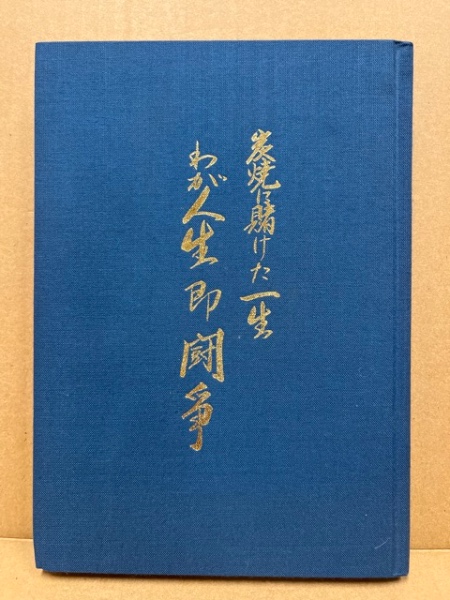 炭焼に賭けた一生
わが人生即闘争